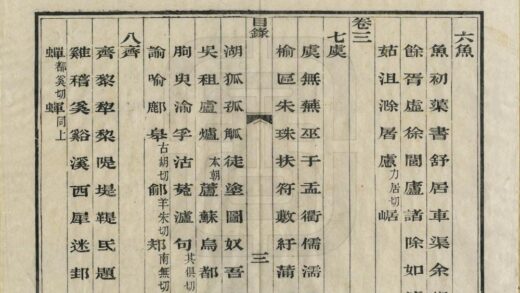 六魚
魚初蕖書舒居車渠余
餘胥虛徐閭廬諸除如
茹沮滁屠慮力居切崌
卷三
七虞
虞無蕪巫于盂衢儒濡
榆區朱珠扶符敷紆蒲
目錄
三
湖狐孤觚徒塗圖奴吾
吳租盧爐太朝蘆蘇烏都
朐臾渝孚沽菟瀘句其俱切
諭喻鄜古胡切羊朱切南無切
八齊
齊黎犂棃隄堤鞮氐題
雞稽奚谿溪西犀迷邽
都奚切同上